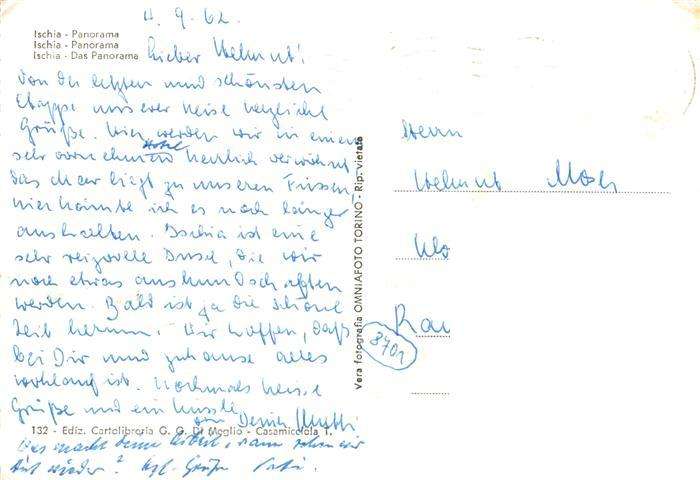 11.9.62
Ischia - Panorama
Ischia - Panorama
Ischia - Das Panorama
Lieber Helmut!
Von der letzten und schönsten
Etappe unserer Reise herzlichst
Grüße. Hier werden wir in einem
sehr vornehmen Hotel herrlich verwöhnt
Das Meer liegt zu unseren Füssen,
hier könnte ich es noch länger
aushalten. Ischia ist eine
sehr reizvolle Insel, die wir
noch etwas auskundschaften
werden. Bald ist ja die schöne
Zeit herum. Wir hoffen, daß
bei Dir und zuhause alles
wohlauf ist. Nochmals heisse
Grüße und ein Küssle
von Deiner Mutti
132 - Ediz. Cartolibreria G. G. Di Meglio - Casamicciola T.
Was macht denn Arbeit, wann sehen wir
wieder? Hzl. Grüße
Vera fotografia OMNIAFOTO TORINO - Rip. vietata
Herrn
Helmut
8701